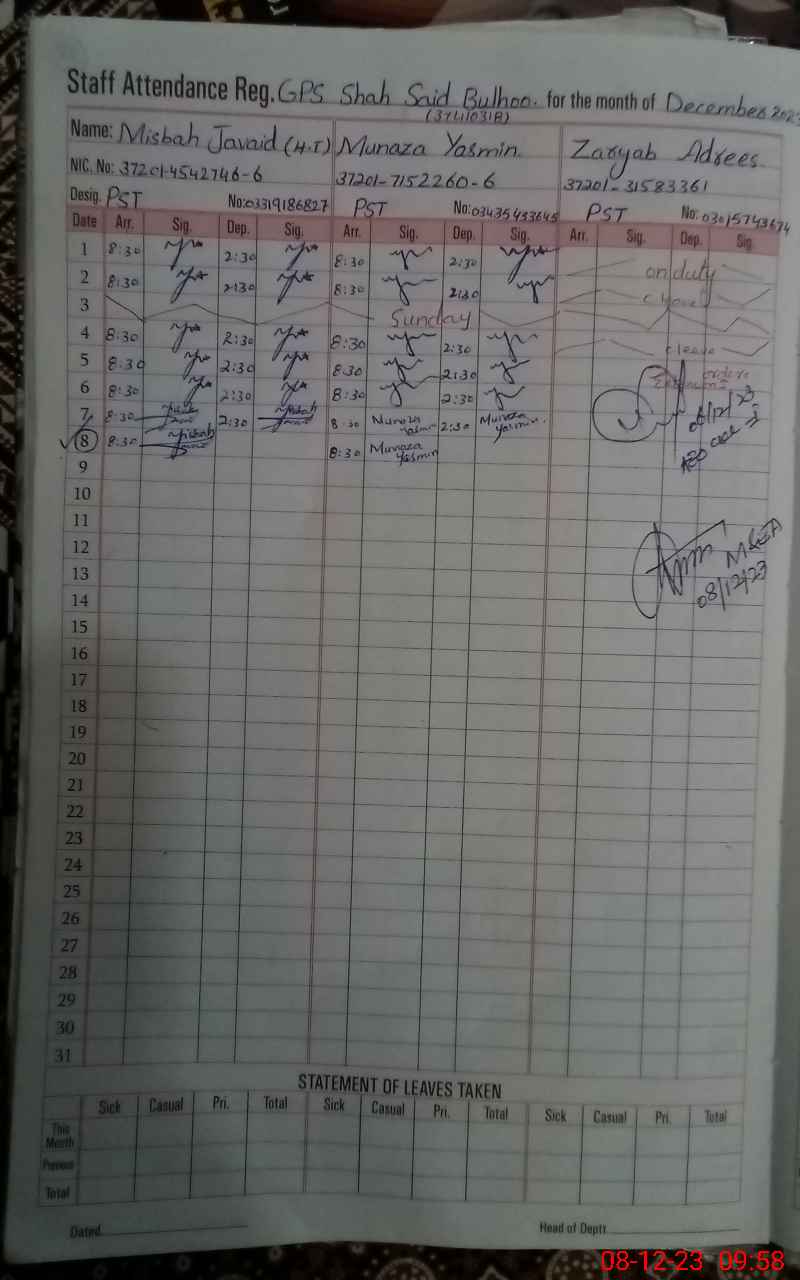 Staff Attendance Reg. GPS Shah Said Bulhoo. for the month of December 2023
(37410318)
Name: Misbah Javaid (H.T) Munaza Yasmin. Zaryab Adrees.
NIC. No: 37201-4542746-6 37201-7152260-6 37201-31583361
Desig. PST No: 03319186827 PST No: 03435433645 PST No: 03015743674
Date Arr. Sig. Dep. Sig. Arr. Sig. Dep. Sig. Arr. Sig. Dep. Sig.
1 8:30 2:30 8:30 2:30 on duty
2 8:30 2:30 8:30 2:30
3 Sunday
4 8:30 2:30 8:30 2:30 c leave
5 8:30 2:30 8:30 2:30 orders
6 8:30 2:30 8:30 2:30
7 8:30 Misbah 2:30 Misbah 8:30 Munaza Yasmin 2:30 Munaza Yasmin.
8 8:30 Misbah 8:30 Munaza Yasmin
9
10
11
12 M&EA
13 08/12/23
14
15
16
17
18
19
20
21
22
23
24
25
26
27
28
29
30
31
STATEMENT OF LEAVES TAKEN
Sick Casual Pri. Total Sick Casual Pri. Total Sick Casual Pri. Total
This Month
Previous
Total
Dated Head of Deptt
08-12-23 09:58